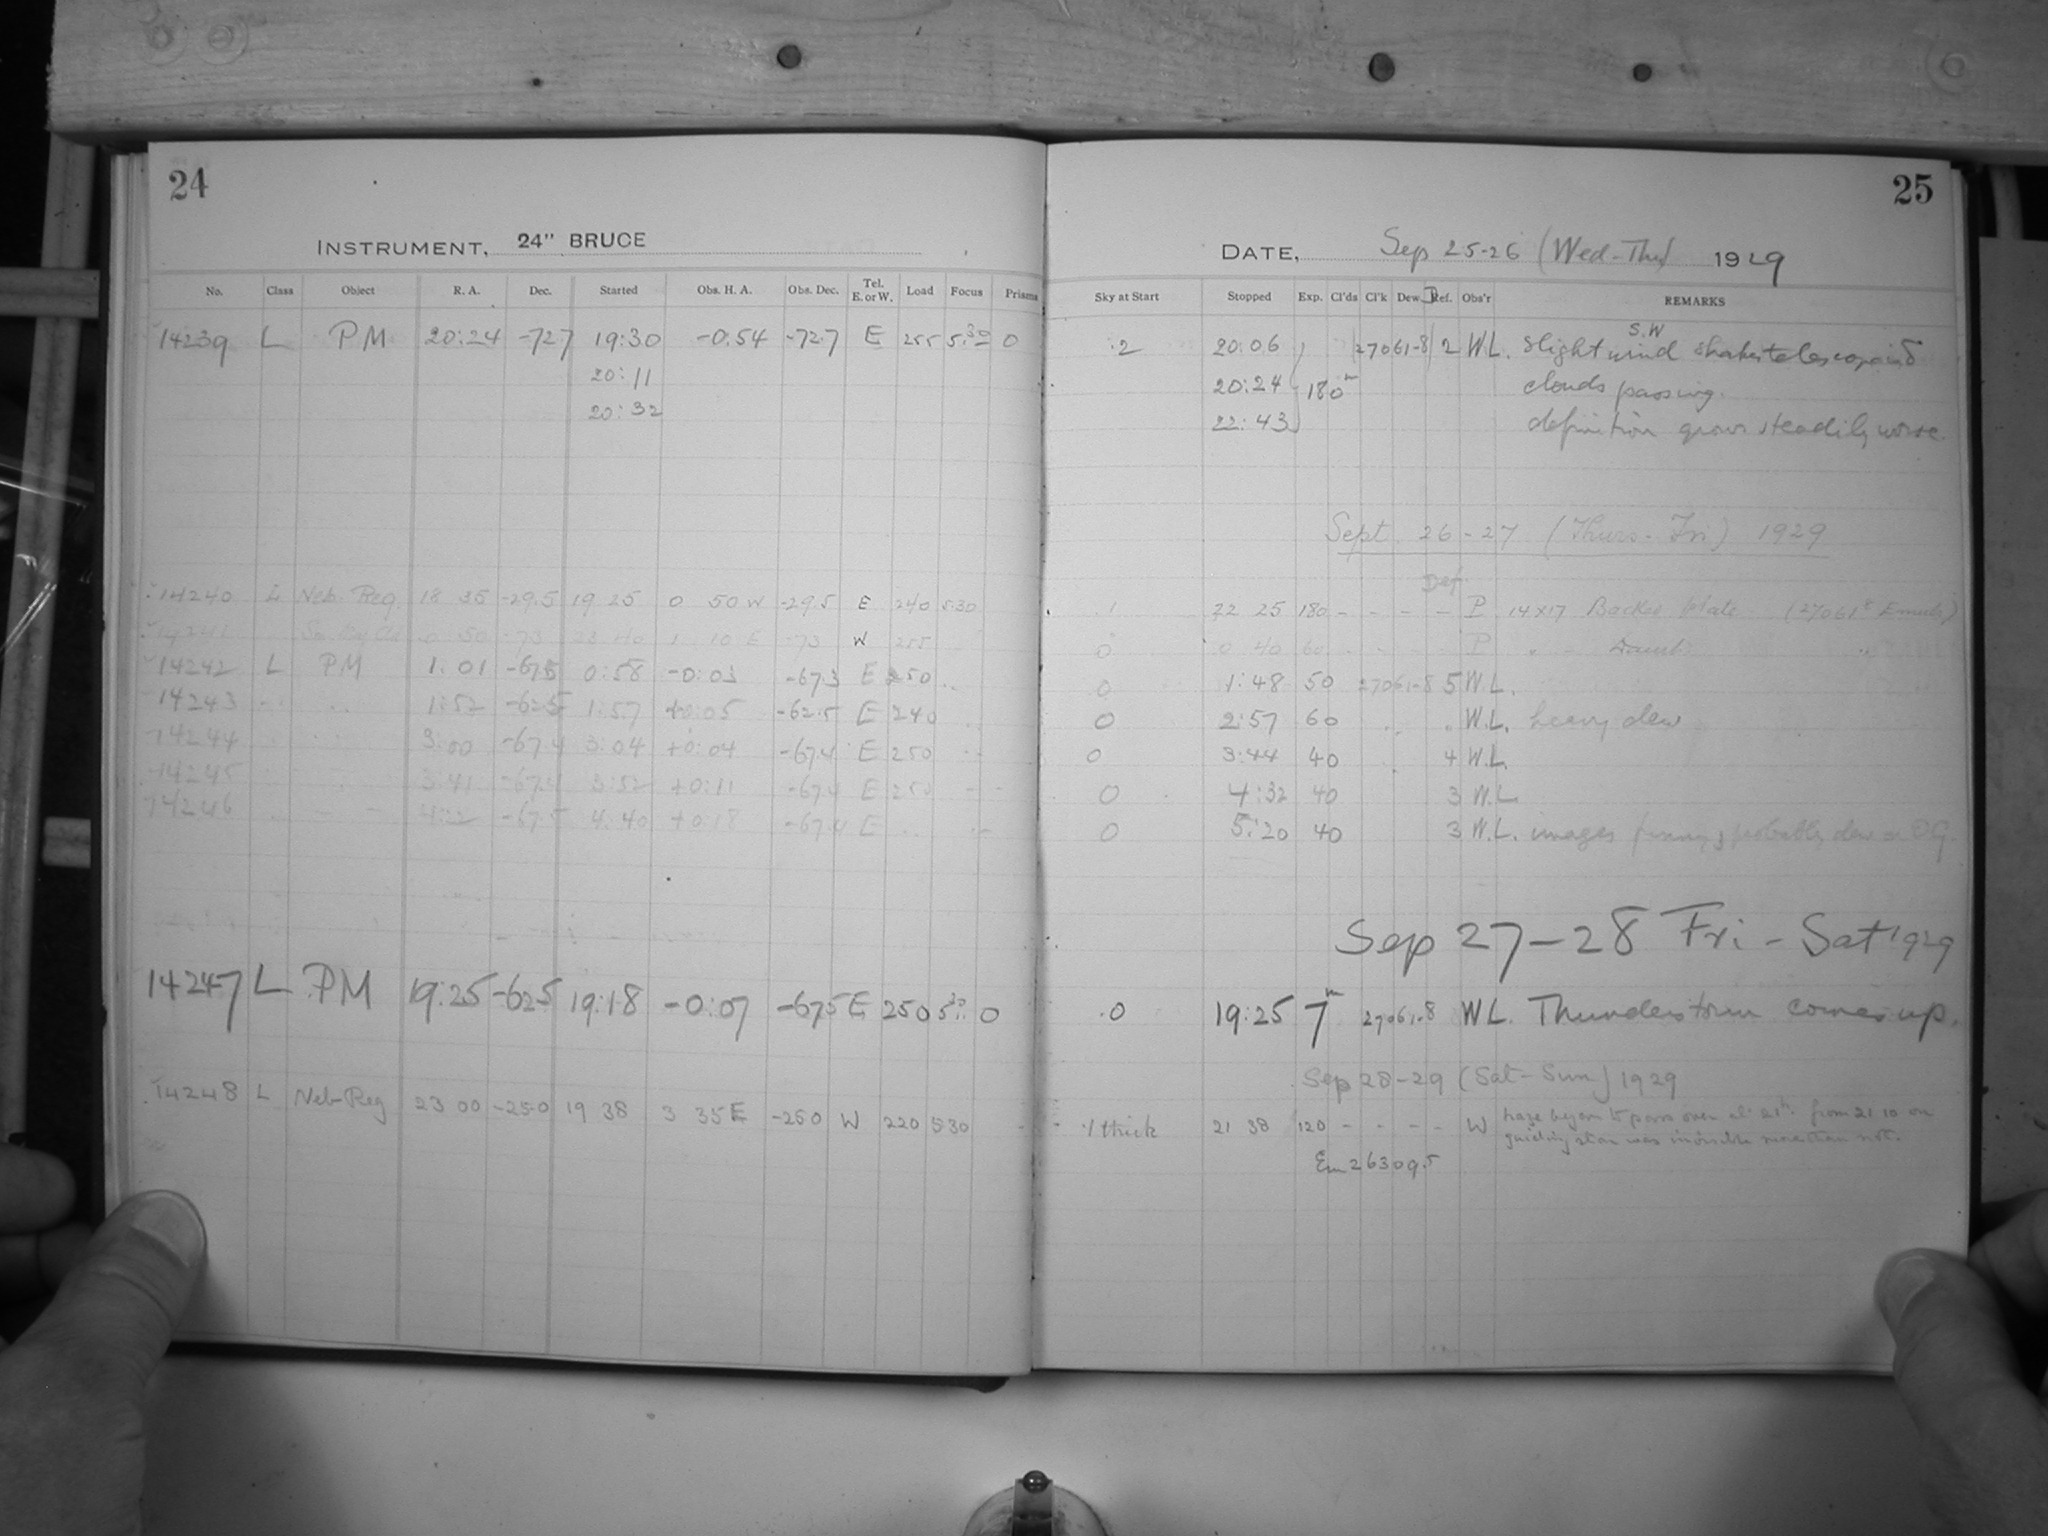 24
INSTRUMENT, 24" BRUCE
No. Class Object R. A. Dec. Started Obs. H. A. Obs. Dec. Tel. E. or W. Load Focus Prisms
14239 L PM 20:24 -72.7 19:30 -0:54 -72.7 E 255 5.30 0
20:11
20:32
14240 L Neb. Reg. 18 35 -29.5 19 25 0 50 W -29.5 E 240 5.30
0 50 -73 1 10 E -73 W 255
14242 L PM 1:01 0:58 -0:03 -67.3 E 250
14243 1:52 -62.5 1:57 +0:05 -62.5 E 240
14244 3:00 -67.4 3:04 +0:04 -67.4 E 250
14245 3:41 -67.4 3:52 +0:11 -67.4 E 250
14246 4:22 -67.5 4:40 +0:18 -67.4 E
14247 L PM 19:25 -62.5 19:18 -0:07 -67.5 E 250 0
14248 L Neb-Reg 23 00 -25.0 19 38 3 35 E -25.0 W 220 5.30
25
DATE, Sep 25-26 (Wed-Thu) 1929
Sky at Start Stopped Exp. Cl'ds Cl'k Dew. Ref. Obs'r REMARKS
.2 20:06 27061-8 2 W.L. Slight S.W wind shakes telescope and
20:24 180m clouds passing.
22:43 definition grows steadily worse.
Sept. 26-27 (Thurs-Fri) 1929
Def.
.1 22 25 180 - - - - P 14x17 Backed Plate (27061 Emuls)
0 0 40 60 P
0 1:48 50 27061-8 5 W.L.
0 2:57 60 W.L. heavy dew
0 3:44 40 4 W.L.
0 4:32 40 3 W.L.
0 5:20 40 3 W.L. images probably dew on O.G.
Sep 27-28 Fri - Sat 1929
.0 19:25 7m 27061-8 W.L. Thunderstorm comes up.
Sep 28-29 (Sat-Sun) 1929
.1 thick 21 38 120 - - - - W haze began to pass over at 21h. from 21 10 on
guiding star was invisible more than not.
Em 26309.5